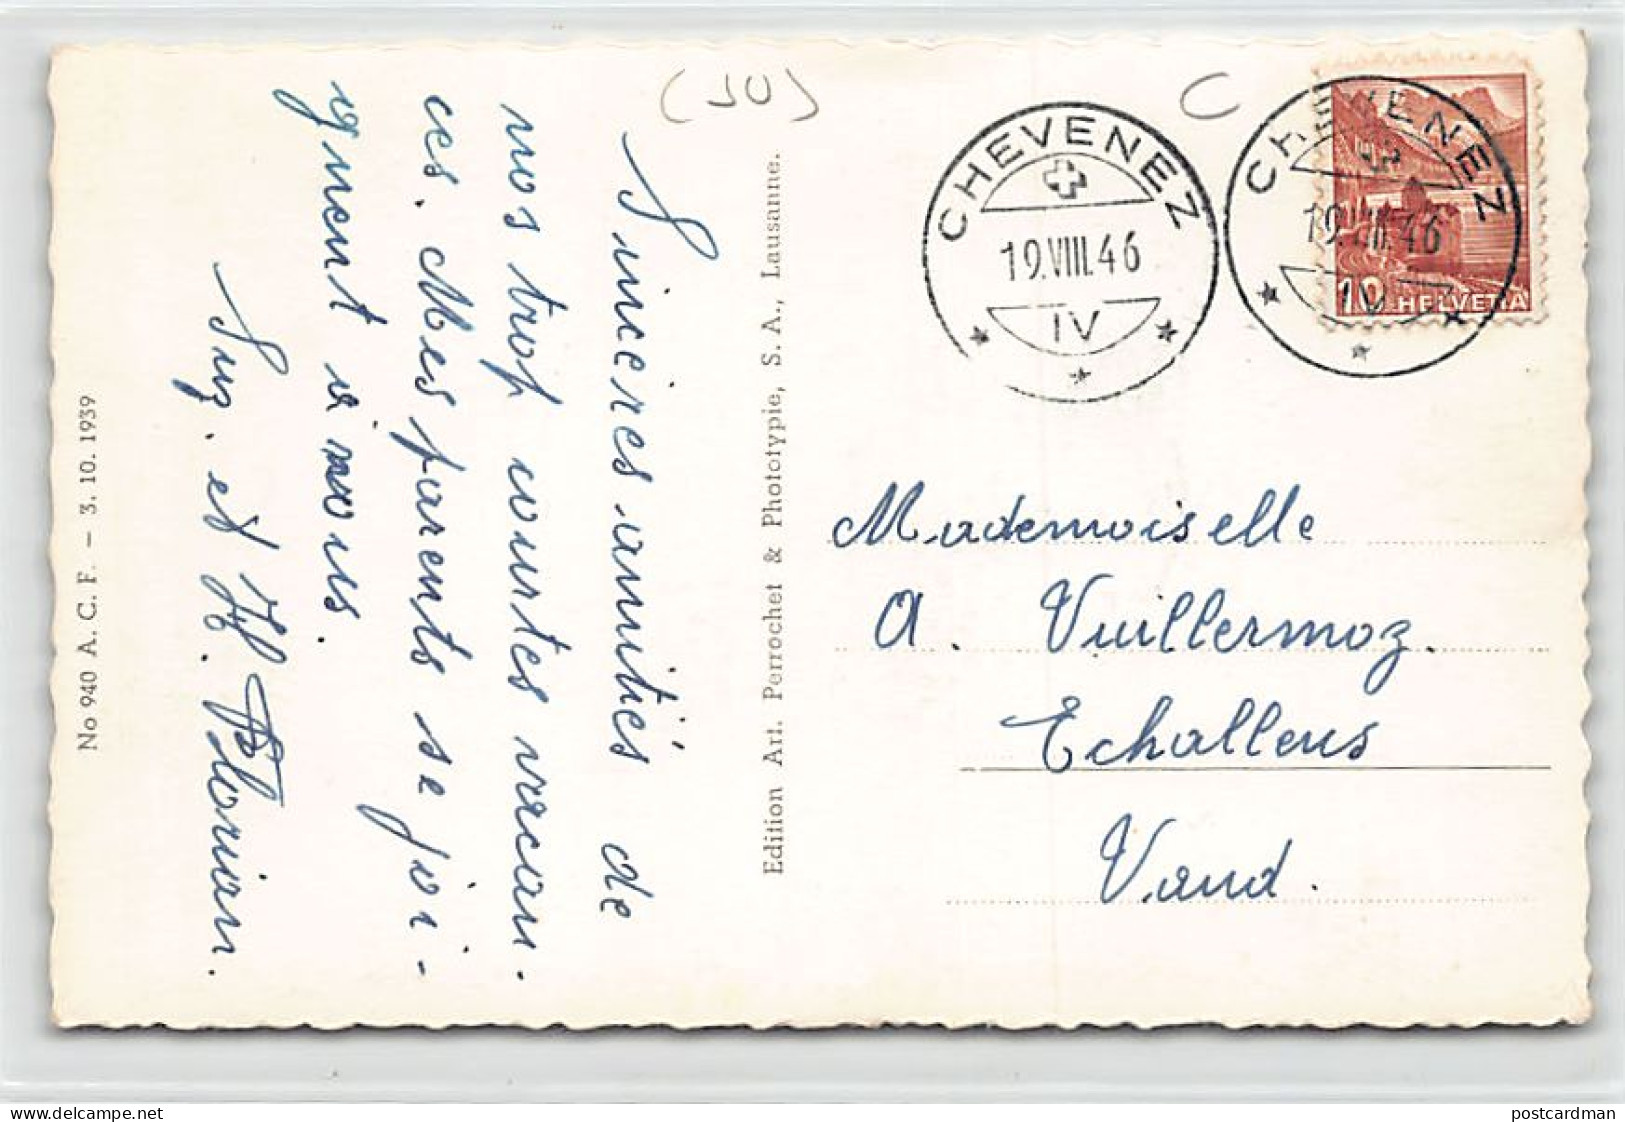 (JU)
C
Sincères amitiés de
nos trop courtes vacan-
ces. Mes parents se joi-
gnent à nous.
Suz. et H. Florian.
No 940 A. C. F. – 3. 10. 1939
Edition Art. Perrochet & Phototypie, S. A., Lausanne.
CHEVENEZ
19.VIII.46
IV
CHEVENEZ
19.VIII.46
IV
10 HELVETIA
Mademoiselle
A. Vuillermoz.
Echallens
Vaud.
delcampe.net
postcardman